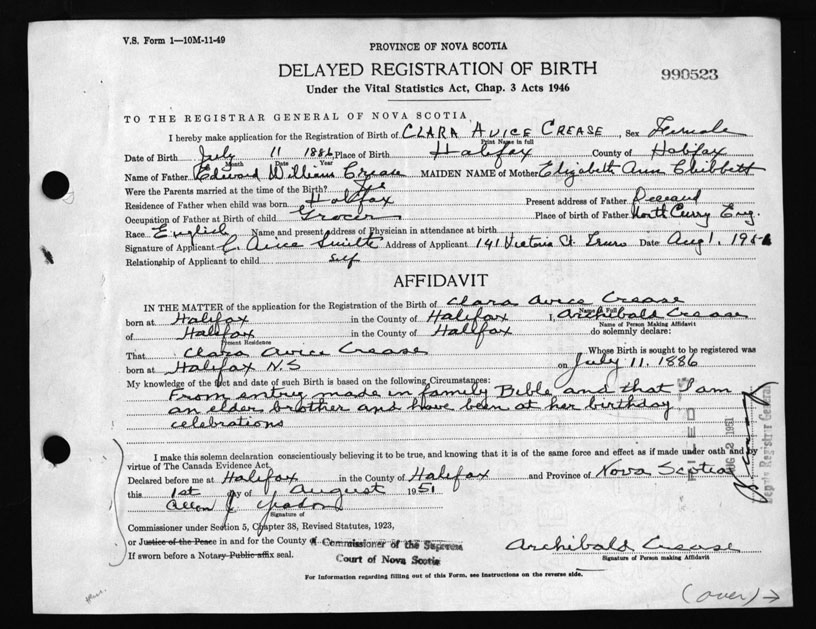 V.S. Form 1—10M-11-49
PROVINCE OF NOVA SCOTIA
DELAYED REGISTRATION OF BIRTH
990523
Under the Vital Statistics Act, Chap. 3 Acts 1946
TO THE REGISTRAR GENERAL OF NOVA SCOTIA
I hereby make application for the Registration of Birth of CLARA AVICE CREASE, Sex Female
Print Name in full
Date of Birth July 11 1886 Place of Birth Halifax County of Halifax
Month Date Year
Name of Father Edward William Crease MAIDEN NAME of Mother Elizabeth Ann Chibbett
Were the Parents married at the time of the Birth? Yes
Residence of Father when child was born Halifax Present address of Father Deceased
Occupation of Father at Birth of child Grocer Place of birth of Father North Curry Eng.
Race English Name and present address of Physician in attendance at birth
Signature of Applicant C. Avice Smith Address of Applicant 141 Victoria St. Truro Date Aug 1, 1951
Relationship of Applicant to child Self
AFFIDAVIT
IN THE MATTER of the application for the Registration of the Birth of Clara Avice Crease
Name in Full
born at Halifax in the County of Halifax I, Archibald Crease
Name of Person Making Affidavit
of Halifax in the County of Halifax do solemnly declare:
Present Residence
That Clara Avice Crease Whose Birth is sought to be registered was
born at Halifax N.S on July 11, 1886
My knowledge of the fact and date of such Birth is based on the following Circumstances:
From entry made in family Bible and that I am
an elder brother and have been at her birthday
celebrations
I make this solemn declaration conscientiously believing it to be true, and knowing that it is of the same force and effect as if made under oath and by
virtue of The Canada Evidence Act.
Declared before me at Halifax in the County of Halifax and Province of Nova Scotia
this 1st day of August 1951
Allen
Signature of
Commissioner under Section 5, Chapter 38, Revised Statutes, 1923,
or Justice of the Peace in and for the County of
A Commissioner of the Supreme
Court of Nova Scotia
If sworn before a Notary Public affix seal.
Archibald Crease
Signature of Person making Affidavit
For Information regarding filling out of this Form, see Instructions on the reverse side.
FILED
AUG 2 1951
Deputy Registrar General
(over) →